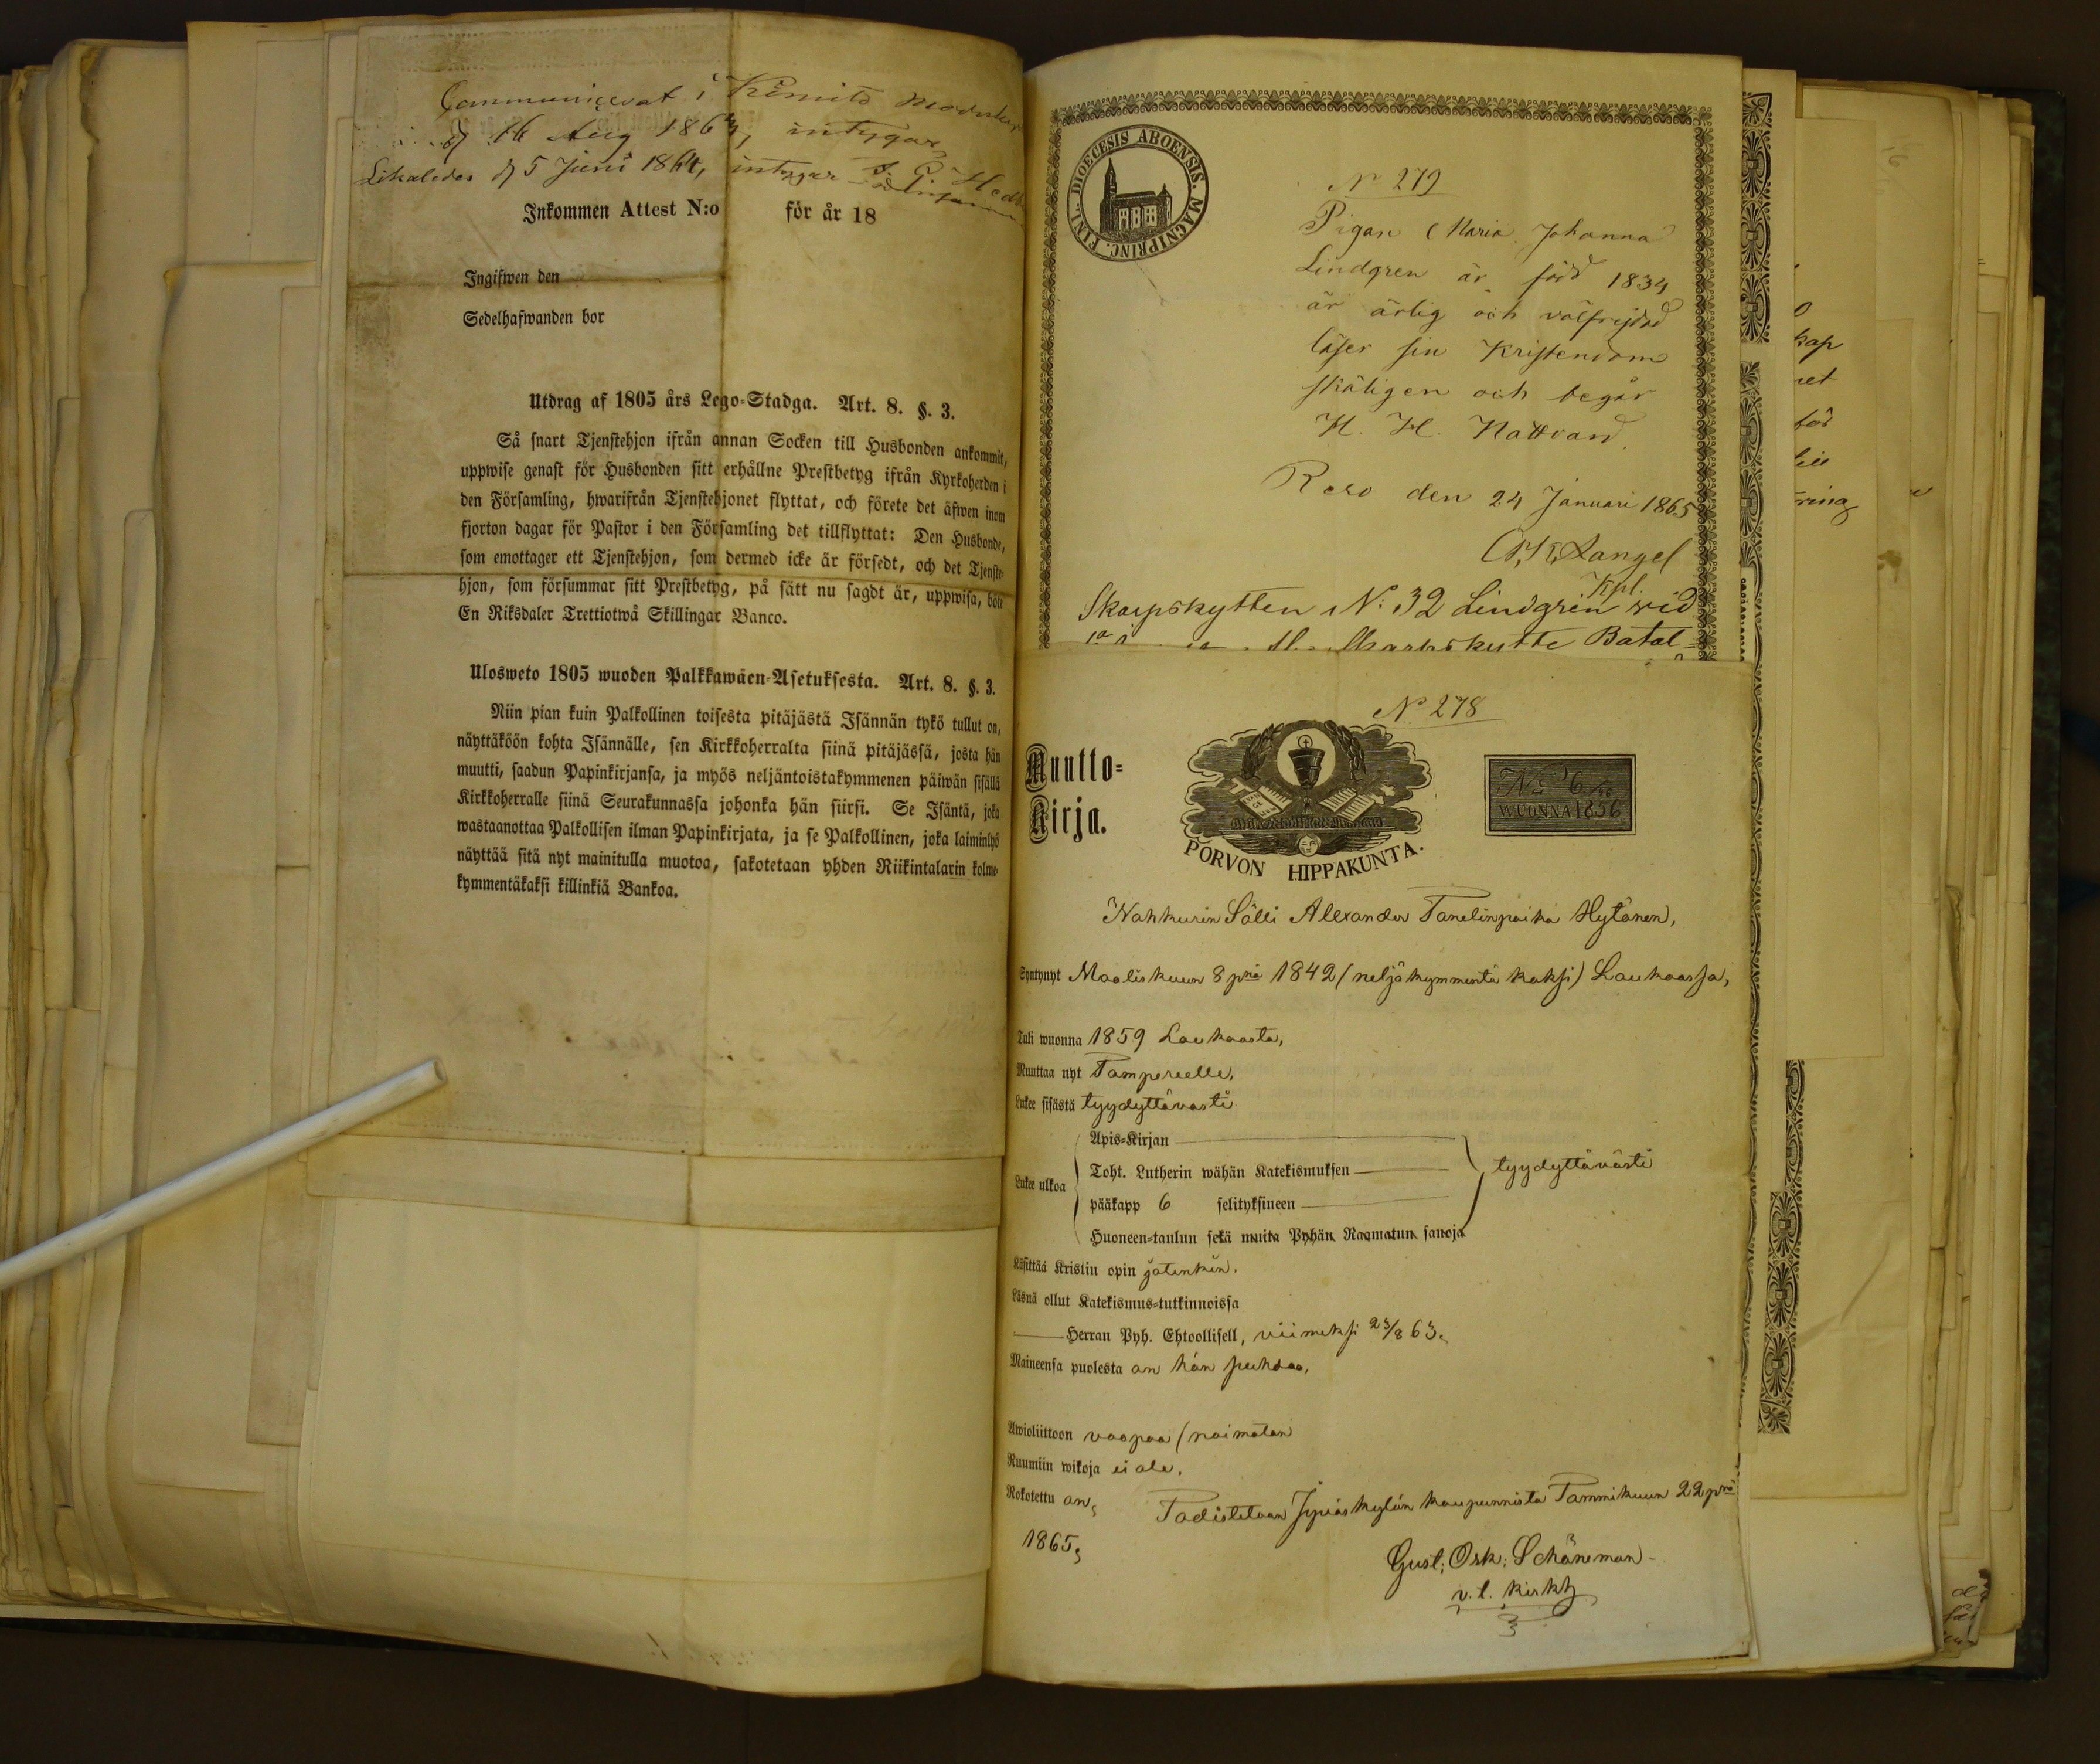 Communicerat i Kimito Moderkyr
d 16 Aug 1864, intygar
Likaledes d 5 Juni 1864, intygar
Inkommen Attest N:o för år 18
Ingifwen den
Sedelhafwanden bor
Utdrag af 1805 års Lego-Stadga. Art. 8. §. 3.
Så snart Tjenstehjon ifrån annan Socken till Husbonden ankommit,
uppwise genast för Husbonden sitt erhållne Prestbetyg ifrån Kyrkoherden i
den Församling, hwarifrån Tjenstehjonet flyttat, och förete det äfwen inom
fjorton dagar för Pastor i den Församling det tillflyttat: Den Husbonde,
som emottager ett Tjenstehjon, som dermed icke är försedt, och det Tjenste-
hjon, som försummar sitt Prestbetyg, på sätt nu sagdt är, uppwisa, böte
En Riksdaler Trettiotwå Skillingar Banco.
Ulosweto 1805 wuoden Palkkawäen-Asetuksesta. Art. 8. §. 3.
Niin pian kuin Palkollinen toisesta pitäjästä Isännän tykö tullut on,
näyttäköön kohta Isännälle, sen Kirkkoherralta siinä pitäjässä, josta hän
muutti, saadun Papinkirjansa, ja myös neljäntoistakymmenen päiwän sisällä
Kirkkoherralle siinä Seurakunnassa johonka hän siirsi. Se Isäntä, joka
wastaanottaa Palkollisen ilman Papinkirjata, ja se Palkollinen, joka laiminlyö
näyttää sitä nyt mainitulla muotoa, sakotetaan yhden Riikintalarin kolme-
kymmentäkaksi killinkiä Bankoa.
DIOECESIS ABOENSIS. MAGNI PRINC. FINL.
N 279
Pigan Maria Johanna
Lindgren är född 1834
är ärlig och välfrejdad
läser sin Kristendom
skäligen och begår
H. H. Nattvard.
Reso den 24 Januari 1865
Langel
Kpl.
Skarpskytten N: 32 Lindgrén vid
Batal-
N 278
Muutto-
Kirja.
PORVON HIPPAKUNTA.
No 6
WUONNA 1856
Nahkurin Sälli Alexander Tanelinpoika Hytönen,
Syntynyt Maaliskuun 8 pnä 1842 (neljäkymmentä kaksi) Laukaassa,
Tuli wuonna 1859 Laukaasta,
Muuttaa nyt Tampereelle,
Lukee sisästä tyydyttävästi
Lukee ulkoa
Apis-Kirjan
Toht. Lutherin wähän Katekismuksen
pääkapp 6 selityksineen
Huoneen-taulun sekä muita Pyhän Raamatun sanoja
tyydyttävästi
Käsittää Kristin opin jotenkin.
Läsnä ollut Katekismus-tutkinnoissa
Herran Pyh. Ehtoollisell, viimeksi 23/8 63.
Maineensa puolesta on hän puhdas,
Awioliittoon vaapaa (naimaton
Ruumiin wikoja ei ole.
Rokotettu on,
Todistetaan Jyväskylän kaupunnista Tammikuun 22 pnä
1865,
Gust. Osk. Schöneman
v. t. kirkh